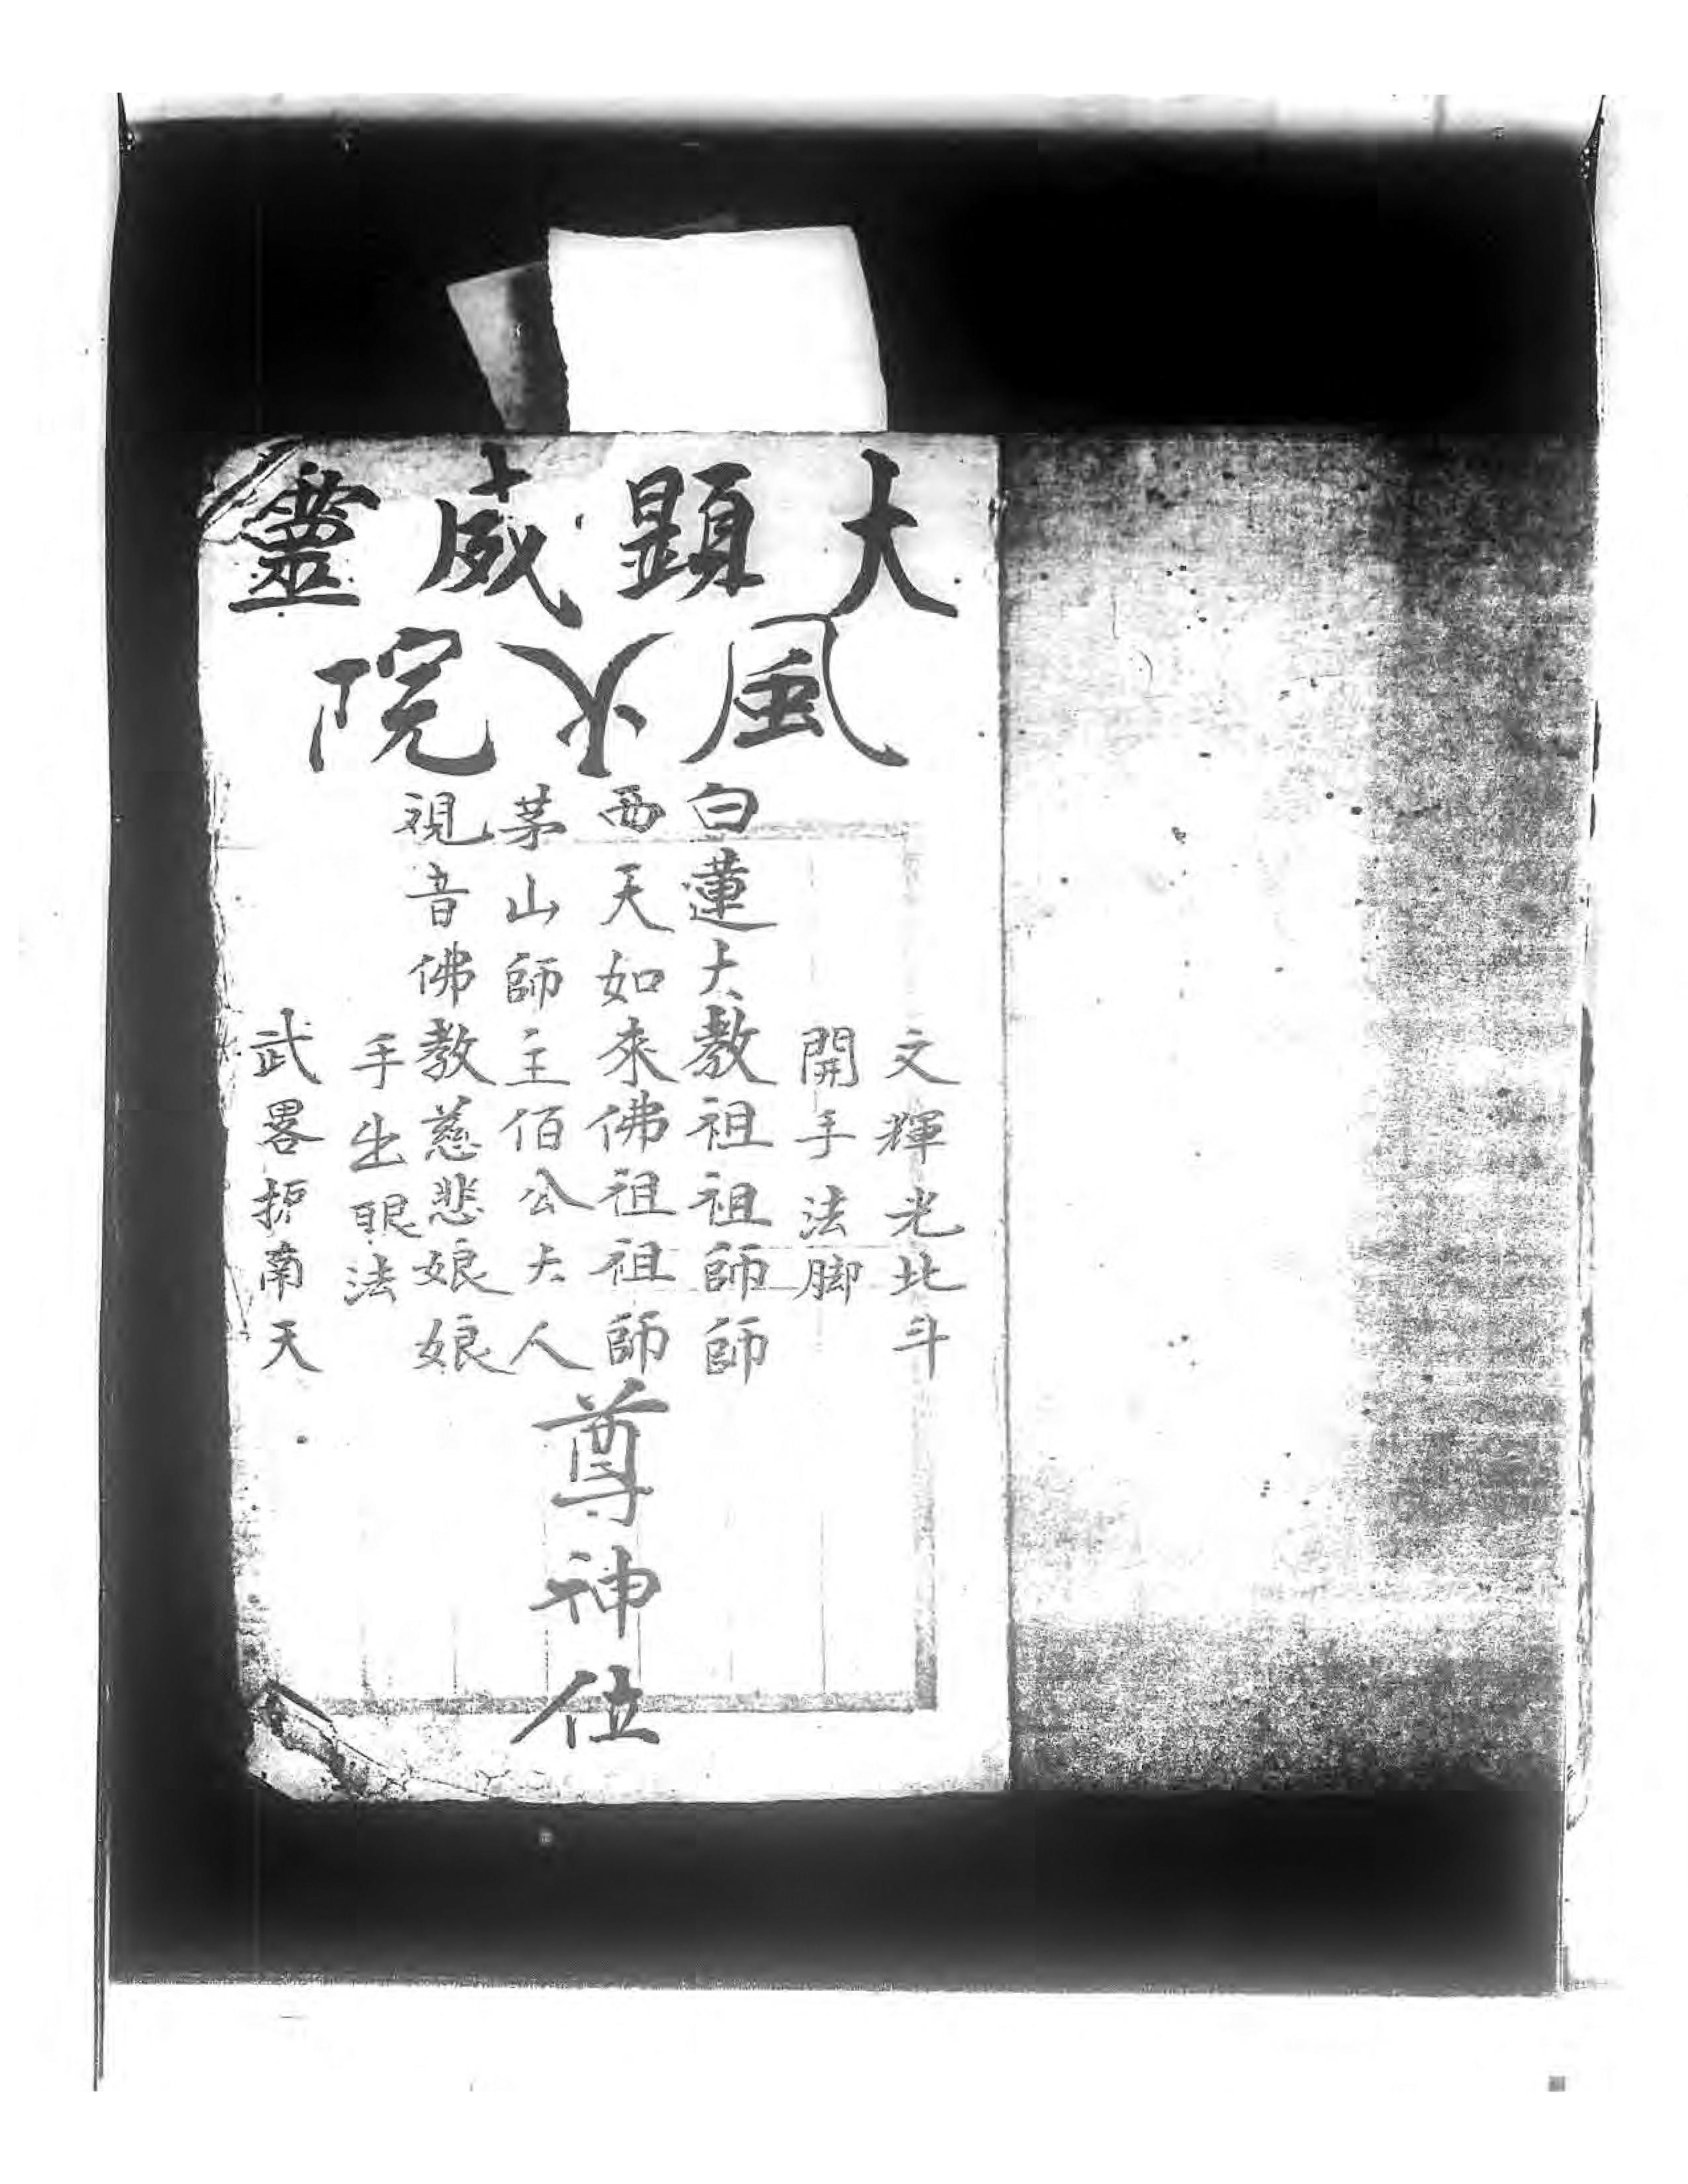 大顕威靈
風火院
文輝光北斗
開手法脚
白蓮大教祖祖師師
西天如來佛祖祖師
茅山師主佰公大人
視音佛教慈悲娘娘
手出眼法
武畧护南天
尊神位